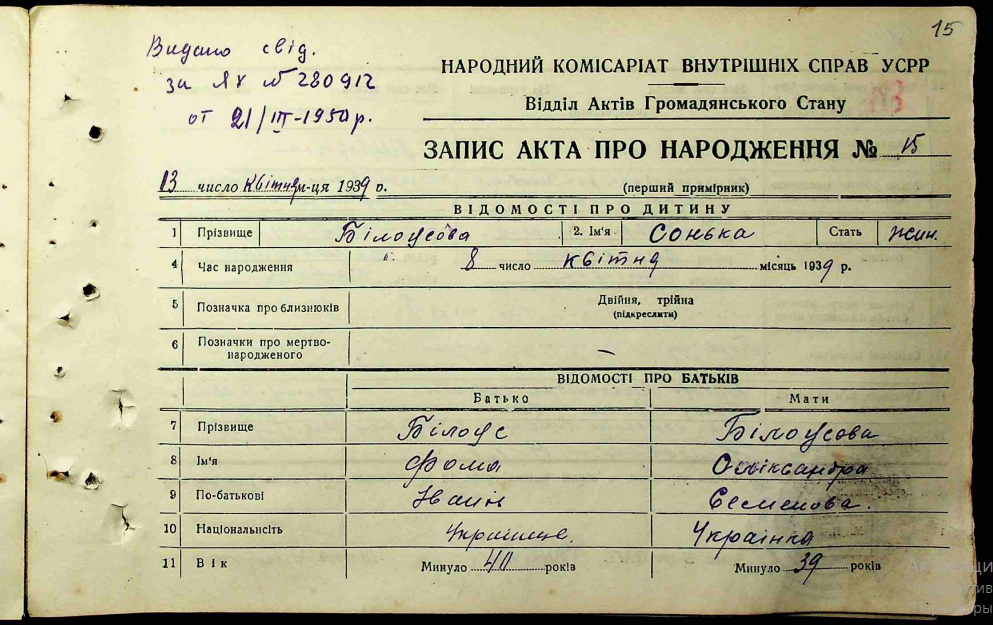 15
Видано свід.
за ЯХ № 280912
от 21/III-1950 р.
НАРОДНИЙ КОМІСАРІАТ ВНУТРІШНІХ СПРАВ УСРР
Відділ Актів Громадянського Стану
ЗАПИС АКТА ПРО НАРОДЖЕННЯ № 15
13 число квітня м-ця 1939 р.
(перший примірник)
ВІДОМОСТІ ПРО ДИТИНУ
1 Прізвище Білоусова 2. Ім'я Сонька Стать жін.
4 Час народження 8 число квітня місяць 1939 р.
5 Позначка про близнюків Двійня, трійна
(підкреслити)
6 Позначки про мертво-
народженого —
ВІДОМОСТІ ПРО БАТЬКІВ
Батько Мати
7 Прізвище Білоус Білоусова
8 Ім'я Фома
9 По-батькові Іванів Семенова.
10 Національність Українка
11 Вік Минуло 40 років Минуло 39 років